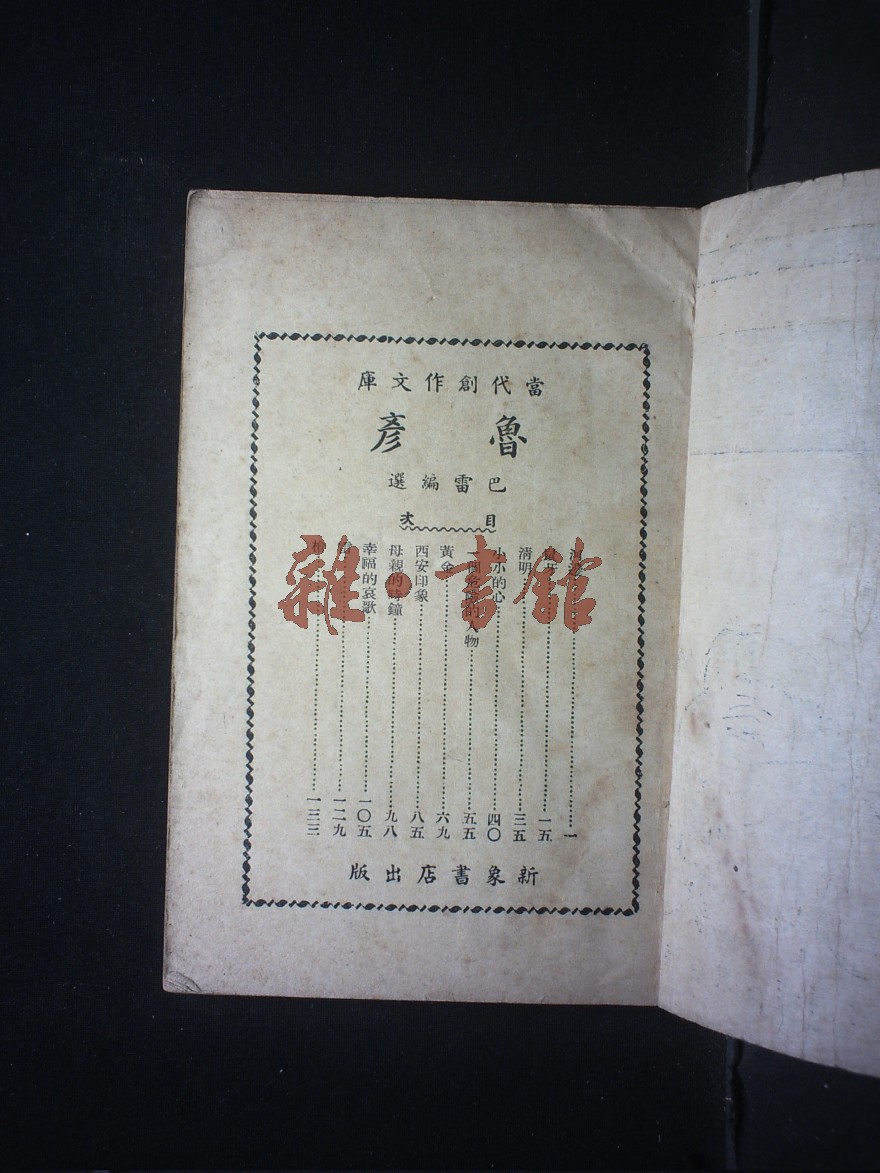 當代創作文庫
魯彥
巴雷編選
目次
河邊……一
鼠牙……一五
清明……三五
小小的心……四〇
一個危險的人物……五五
黃金……六九
西安印象……八五
母親的時鐘……九八
幸福的哀歌……一〇五
……一二九
……一三三
新象書店出版
雜·書館